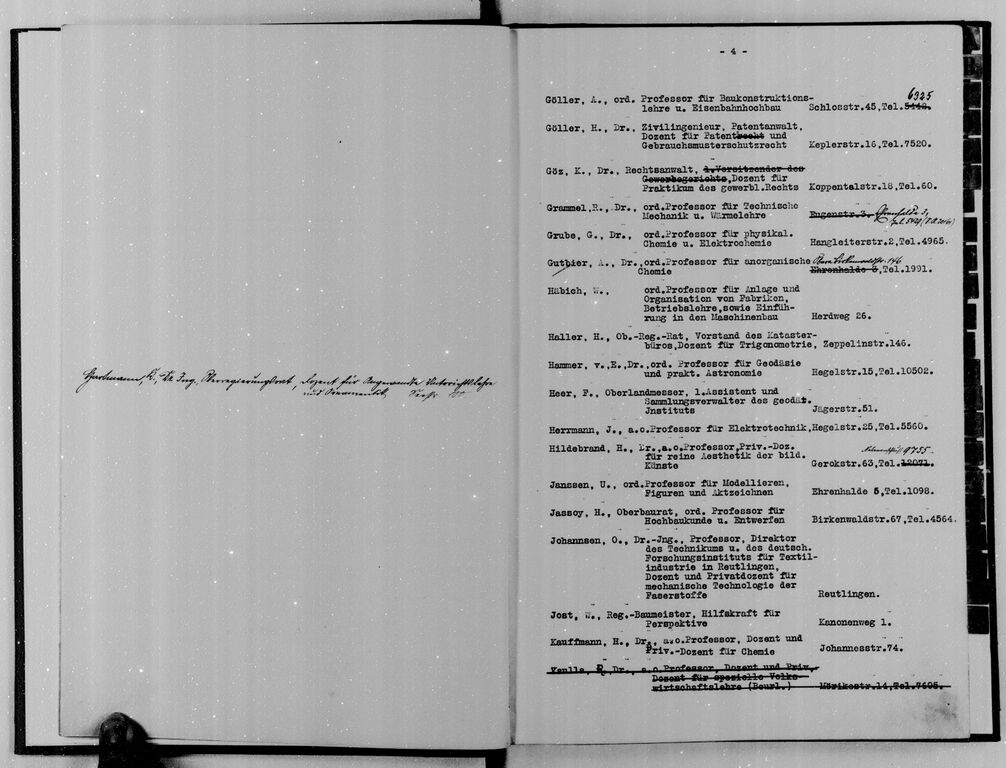 Hartmann, K., Dr. Ing., Oberregierungsrat, Dozent für Angewandte Unterrichtslehre
und Ornamentik.
- 4 -
6325
Göller, A., ord. Professor für Baukonstruktions-
lehre u. Eisenbahnhochbau Schlosstr.45,Tel.5448.
Göller, H., Dr., Zivilingenieur, Patentanwalt,
Dozent für Patentrecht und
Gebrauchsmusterschutzrecht Keplerstr.16,Tel.7520.
Göz, K., Dr., Rechtsanwalt, 1.Vorsitzender des
Gewerbegerichts,Dozent für
Praktikum des gewerbl.Rechts Koppentalstr.18,Tel.60.
Grammel,R., Dr., ord.Professor für Technische
Mechanik u. Wärmelehre Eugenstr.3. Ehrenhalde 3,
Grube, G., Dr., ord.Professor für physikal.
Chemie u. Elektrochemie Hangleiterstr.2,Tel.4965.
Gutbier, A., Dr.,ord.Professor für anorganische Birkenwaldstr. 146
Chemie Ehrenhalde 3,Tel.1991.
Häbich, W., ord.Professor für Anlage und
Organisation von Fabriken,
Betriebslehre,sowie Einfüh-
rung in den Maschinenbau Herdweg 26.
Haller, H., Ob.-Reg.-Rat, Vorstand des Kataster-
büros,Dozent für Trigonometrie, Zeppelinstr.146.
Hammer, v.,E.,Dr.,ord. Professor für Geodäsie
und prakt. Astronomie Hegelstr.15,Tel.10502.
Heer, F., Oberlandmesser, 1.Assistent und
Sammlungsverwalter des geodät.
Jnstituts Jägerstr.51.
Herrmann, J., a.o.Professor für Elektrotechnik,Hegelstr.25,Tel.5560.
Hildebrand, H., Dr.,a.o.Professor,Priv.-Doz. 9755
für reine Aesthetik der bild.
Künste Gerokstr.63,Tel.12071.
Janssen, U., ord.Professor für Modellieren,
Figuren und Aktzeichnen Ehrenhalde 5,Tel.1098.
Jassoy, H., Oberbaurat, ord. Professor für
Hochbaukunde u. Entwerfen Birkenwaldstr.67,Tel.4564.
Johannsen, O., Dr.-Jng., Professor, Direktor
des Technikums u. des deutsch.
Forschungsinstituts für Textil-
industrie in Reutlingen,
Dozent und Privatdozent für
mechanische Technologie der
Faserstoffe Reutlingen.
Jost, W., Reg.-Baumeister, Hilfskraft für
Perspektive Kanonenweg 1.
Kauffmann, H., Dr., a.o.Professor, Dozent und
Priv.-Dozent für Chemie Johannesstr.74.
Dr., a.o.Professor, Dozent und Priv.
Dozent für spezielle Volks-
wirtschaftslehre (Beurl.) Mörikestr.14,Tel.7605.